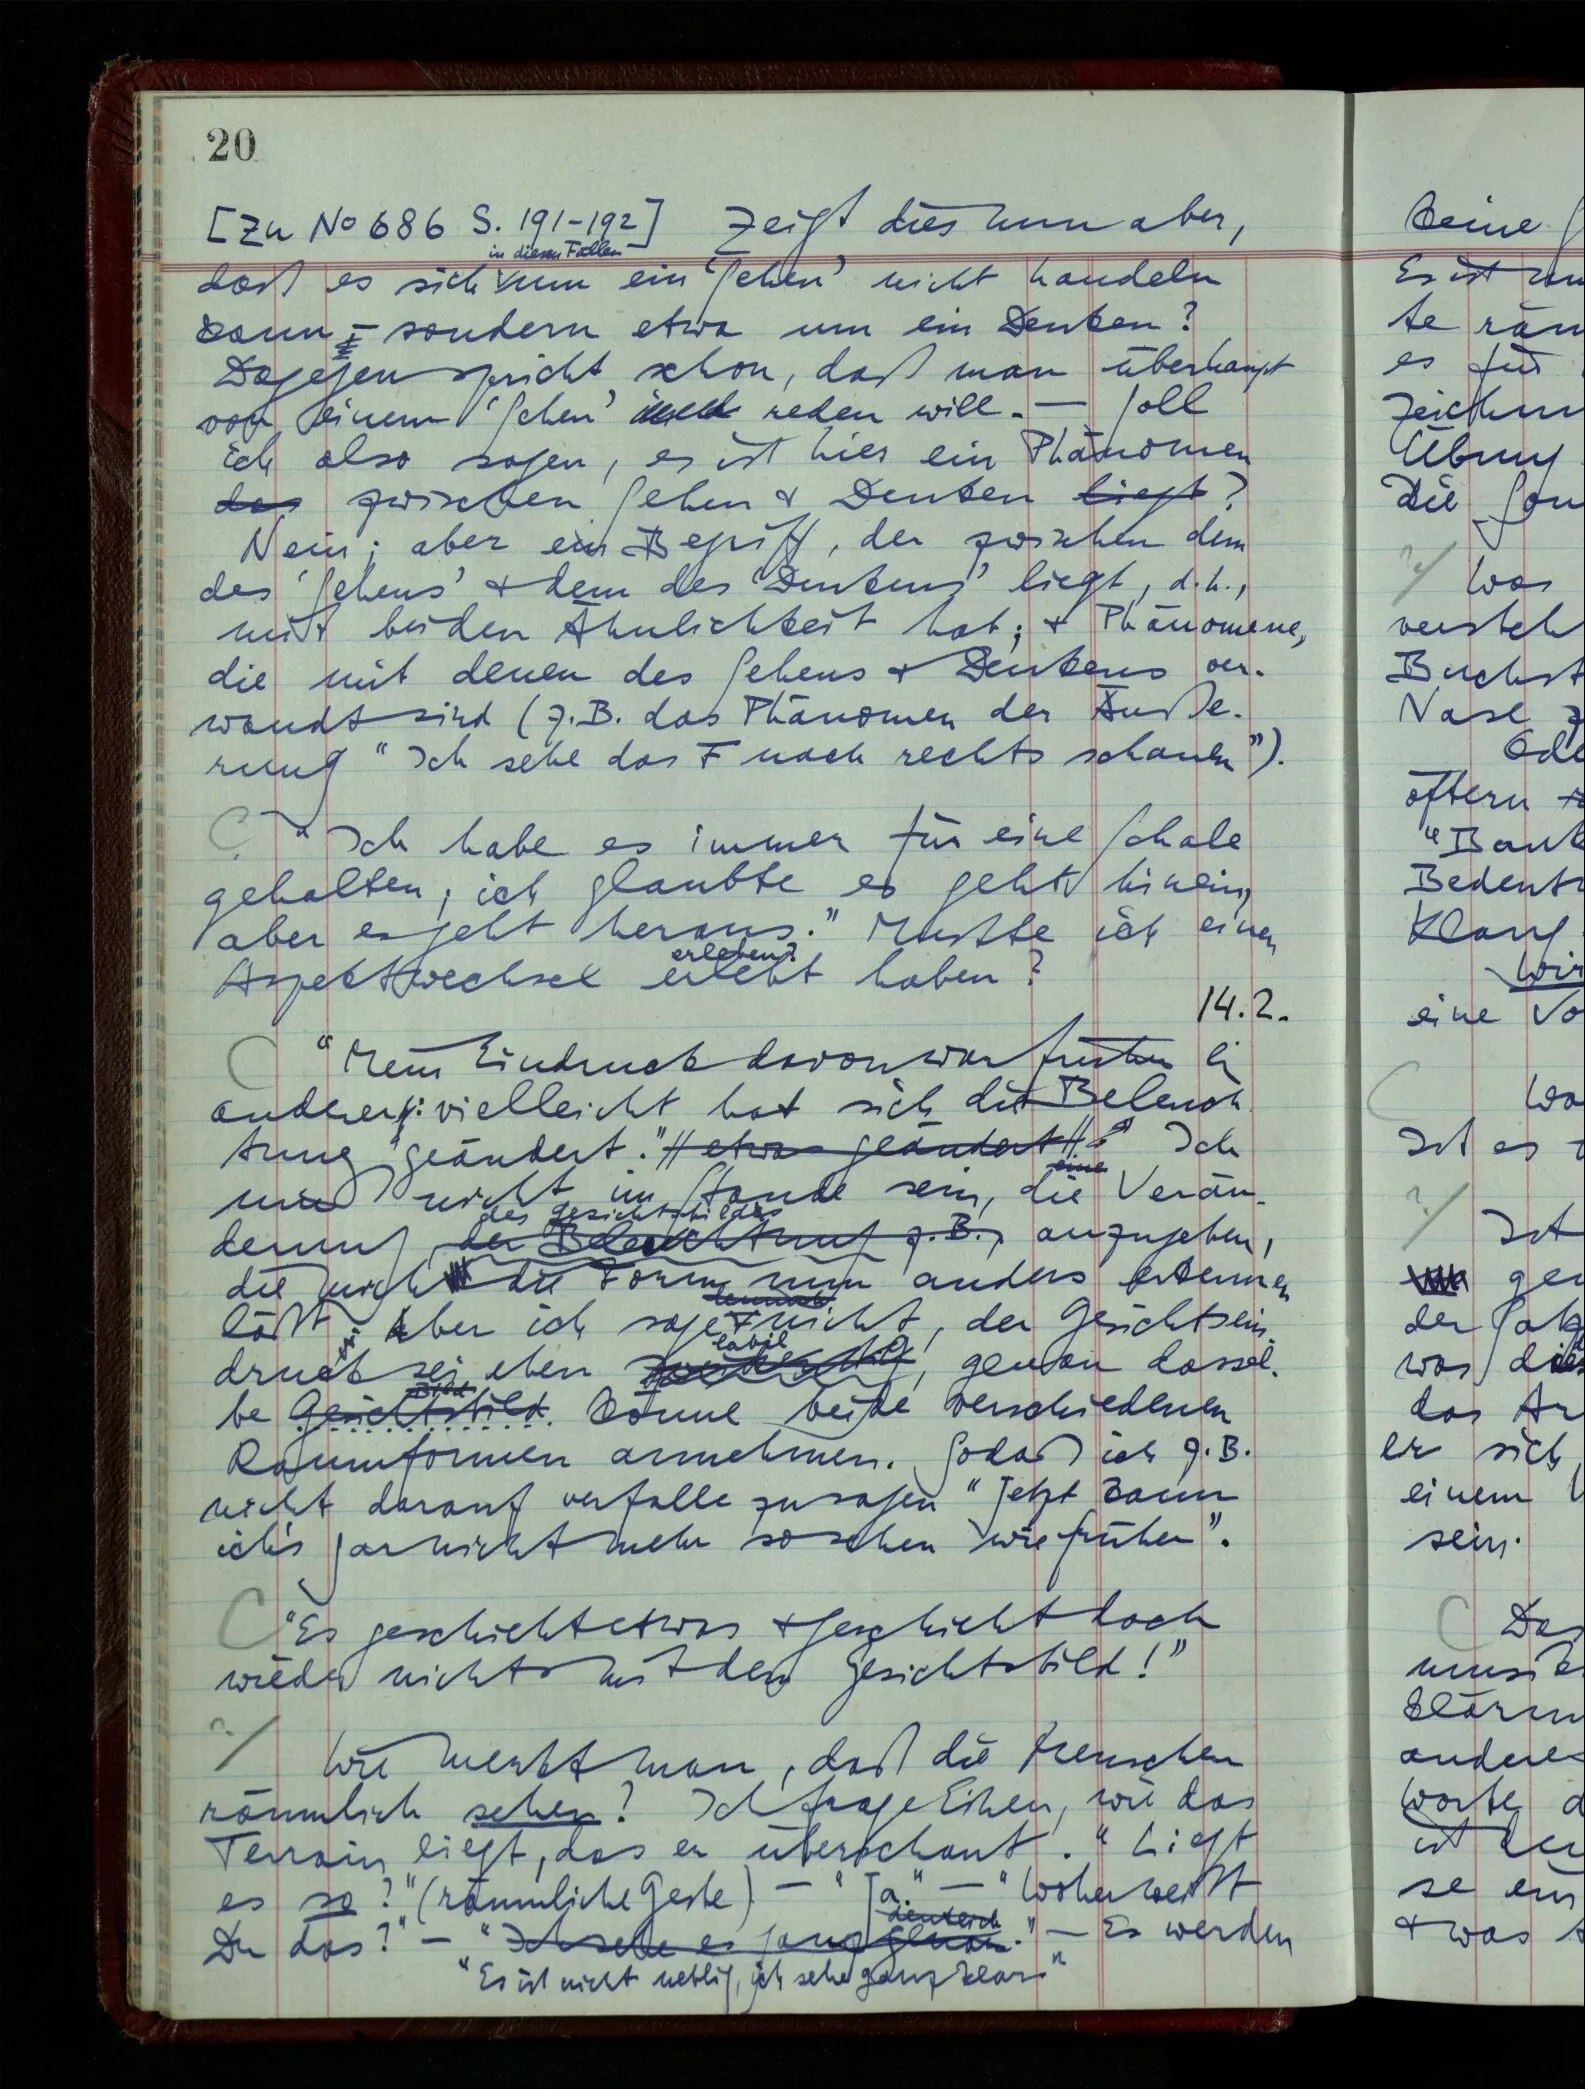 20
[Zu No 686 S. 191-192] Zeigt dies nun aber,
in diesen Fällen
daß es sich um ein ‘Sehen’ nicht handeln
kann – sondern etwa um ein Denken?
Dagegen spricht schon, daß man überhaupt
von einem ‘Sehen’ reden will. — Soll
ich also sagen, es ist hier ein Phänomen
das zwischen Sehen & Denken liegt?
Nein; aber ein Begriff, der zwischen dem
des ‘Sehens’ & dem des ‘Denkens’ liegt, d.h.,
mit beiden Ähnlichkeit hat; & Phänomene,
die mit denen des Sehens & Denkens ver-
wandt sind (z.B. das Phänomen der Äuße-
rung “Ich sehe das F nach rechts schauen”).
C “Ich habe es immer für eine Schale
gehalten; ich glaubte es geht hinein,
aber es geht heraus.” Mußte ich einen
erleben?
Aspektwechsel erlebt haben?
14.2.
C “Mein Eindruck davon war früher ein
anderer: vielleicht hat sich die Beleuch-
tung geändert.” // etwas geändert // Ich
eine
nicht im Stande sein, die Verän-
des Gesichtsbildes
derung der Beleuchtung z.B., anzugeben,
die mich die Form nun anders erkennen
dennoch
läßt. Aber ich sage nicht, der Gesichtsein-
labil
druck sei eben, genau dassel-
Bild
be Gesichtsbild. könne beide verschiedenen
Raumformen annehmen. Sodaß ich z.B.
nicht darauf verfalle zu sagen “Jetzt kann
ich's gar nicht mehr so sehen wie früher”.
C “Es geschieht etwas & geschieht doch
wieder nichts mit dem Gesichtsbild!”
?/ Wie merkt man, daß die Menschen
räumlich sehen? Ich frage Einen, wie das
Terrain liegt, das er überschaut. “Liegt
es so?” (räumliche Geste) — “Ja.” — “Woher weißt
deutlich
Du das?” — “Ich sehe es ganz genau.” — Es werden
“Es ist nicht neblig, ich sehe ganz klar”
keine
Es ist
te räum
es für
Zeichnu
Übung
Die
?/ Was
versteh
Buchst
Nase
Ode
öftern
“Bank
Bedeut
Klang
Wir
eine Vo
C
Ist es
?/ Ist
ger
der
was dies
das
er sich
einem
sein.
C Das
musik
klärun
anderes
Worte d
ist
se ein
& was